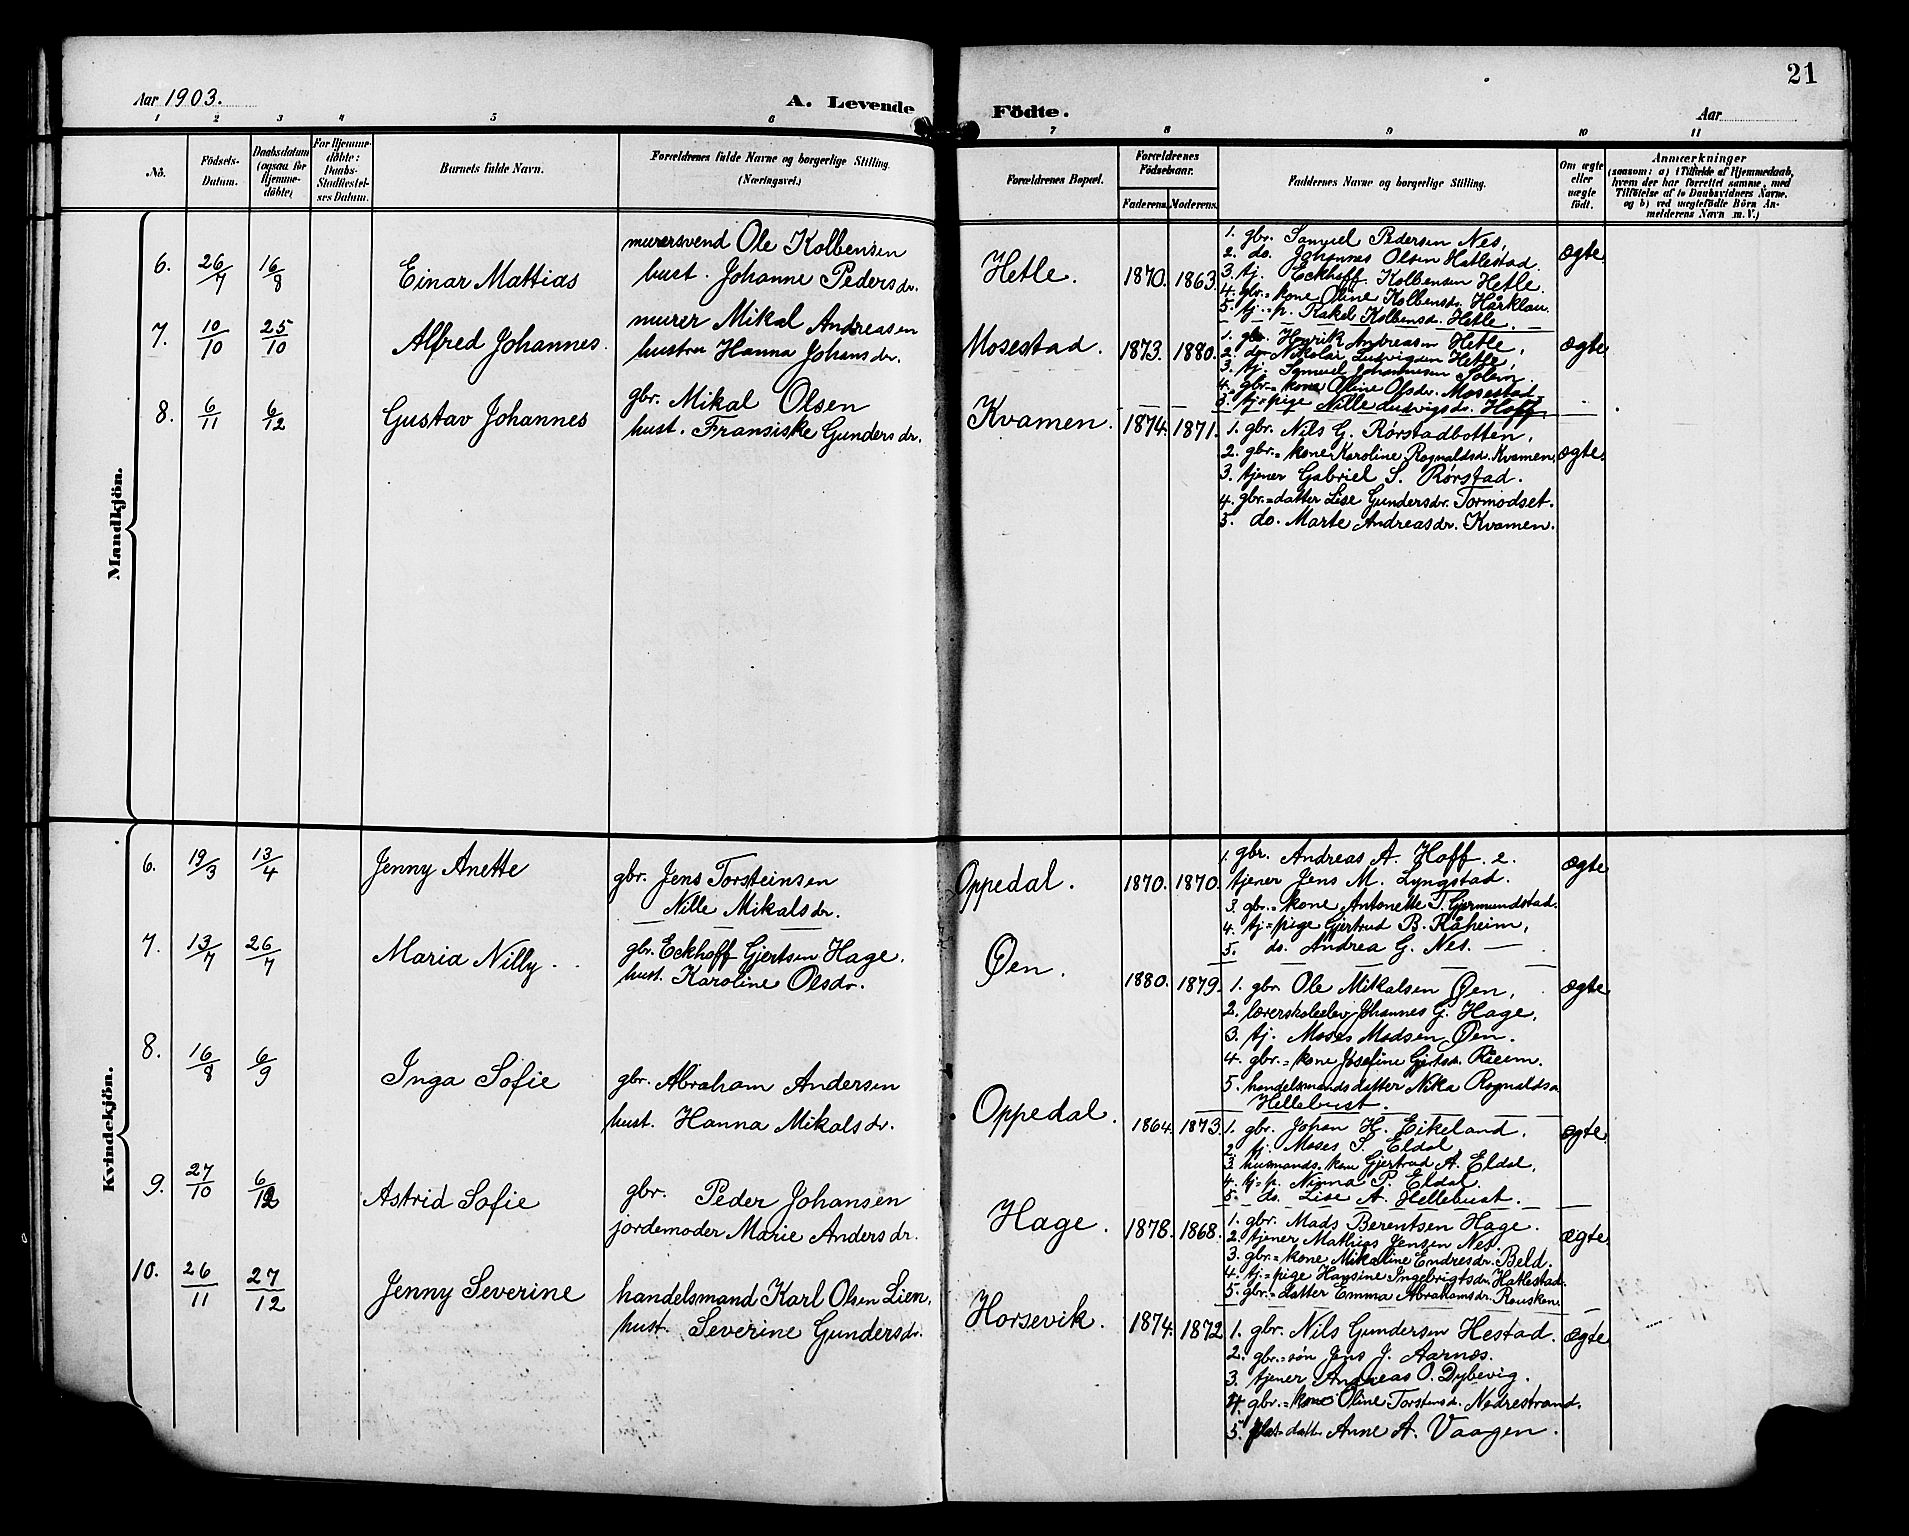 21
Aar 1903.
A. Levende Födte.
Aar
1 2 3 4 5 6 7 8 9 10 11
No.
Födsels-Datum.
Daabsdatum (ogsaa for Hjemme-döbte)
For Hjemme-döbte: Daabs-Stadfæstel-ses Datum.
Barnets fulde Navn.
Forældrenes fulde Navne og borgerlige Stilling. (Næringsvei.)
Forældrenes Bopæl.
Forældrenes Födselsaar.
Faderens. Moderens.
Faddernes Navne og borgerlige Stilling.
Om ægte eller uægte født.
Anmærkninger
(saasom: a) i Tilfælde af Hjemmedaab, hvem der har forrettet samme, med Tilföielse af to Daabsvidners Navne, og b) ved uægtefödte Börn An-melderens Navn m. V.)
Mandkjön.
6. 26/7 16/8 Einar Mattias
murersvend Ole Kolbensen
hust. Johanne Pedersdr.
Hetle. 1870. 1863.
1. gbr. Samuel Pedersen Nes,
2. do. Johannes Olsen Hatlestad.
3. tj. Eckhoff Kolbensen Hetle.
4. gbr.=kone Oline Kolbensdr. Hårklau.
5. tj.=p. Rakel Kolbensdr. Hetle.
ægte.
7. 10/10 25/10 Alfred Johannes.
murer Mikal Andreasen
hustru Hanna Johansdr.
Mosestad. 1873. 1880.
1. gbr. Henrik Andreasen Hetle,
2. do. Nikolai Ludvigsen Hetle,
3. tj. Samuel Johannesen
4. gbr.=kone Oline Olsdr. Mosestad
5. tj=pige Nille Ludvigsdr. Hoff
ægte
8. 6/11 6/12 Gustav Johannes
gbr. Mikal Olsen
hust. Fransiske Gundersdr.
Kvamen. 1874. 1871.
1. gbr. Nils G. Rørstadbotten,
2. gbr.=kone Karoline Rognaldsd. Kvamen,
3. tjener Gabriel S. Rørstad.
4. gbr.=datter Lise Gundersdr. Tormodset.
5. do. Marte Andreasdr. Kvamen.
ægte.
Kvindekjön.
6. 19/3 13/4 Jenny Anette
gbr. Jens Torsteinsen
Nille Mikalsdr.
Oppedal. 1870. 1870.
1. gbr. Andreas A. Hoff. 2.
tjener Jens M. Lyngstad.
3. gbr.=kone Antonette T. Gjermundstad.
4. tj=pige Gjertrud B. Råheim,
5. do. Andrea G. Nes.
ægte
7. 13/7 26/7 Maria Nilly.
gbr. Eckhoff Gjertsen Hage.
hust. Karoline Olsdr.
Øen. 1880. 1879.
1. gbr. Ole Mikalsen Øen,
2. lærerskoleelev Johannes G. Hage,
3. tj. Moses Madsen Øen.
4. gbr.=kone Josefine Gjertsdr.
5. handelsmandsdatter Nika Rognaldsdr
Hellebust.
ægte
8. 16/8 6/9 Inga Sofie
gbr. Abraham Andersen
hust. Hanna Mikalsdr.
Oppedal. 1864. 1873.
1. gbr. Johan H. Eikeland,
2. tj. Moses S. Eldal
3. husmands.kone Gjertrud A. Eldal,
4. tj=p. Ninna P. Eldal.
5. do. Lise A. Hellebust.
ægte
9. 27/10 6/12 Astrid Sofie
gbr. Peder Johansen
jordemoder Marie Andersdr.
Hage. 1878. 1868.
1. gbr. Mads Berentsen Hage.
2. tjener Mathias Jensen Nes.
3. gbr.=kone Mikaline Endresdr. Beld.
4. tj=pige Hansine Ingebrigtsdr. Hatlestad.
5. gbr.=datter Emma Abrahamsdr.
ægte
10. 26/11 27/12 Jenny Severine
handelsmand Karl Olsen Lien,
hust. Severine Gundersdr.
Horsevik. 1874. 1872
1. gbr. Nils Gundersen Hestad.
2. gbr.=søn Jens J. Aarnæs.
3. tjener Andreas O. Dybevig.
4. gbr.=kone Oline Torstensdr. Nedrestrand.
5. datt. Anne A. Vaagen.
ægte